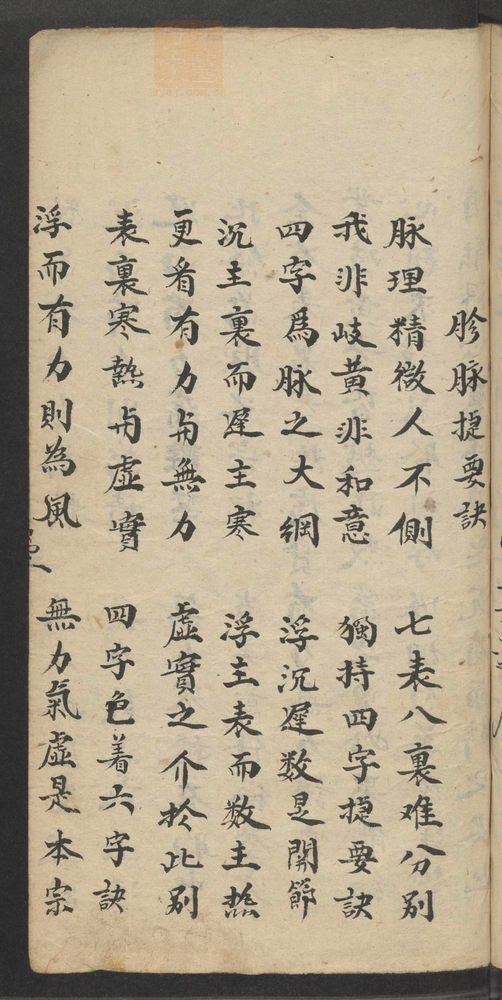 胗脉捷要訣
脉理精微人不側　七表八裏难分別
我非岐黄非和意　獨持四字捷要訣
四字爲脉之大綱　浮沉遲数是関節
沉主裏而遲主寒　浮主表而数主熱
更看有力与無力　虛實之介於此别
表裏寒熱与虛實　四字包着六字訣
浮而有力則為風　無力氣虛是本宗